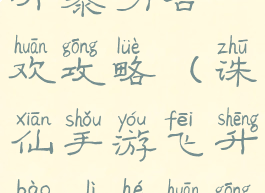 huān gōng lüè zhū
欢攻略（诛
xiān shǒu yóu fēi shēng
仙手游飞升
bào lì hé huān gōng